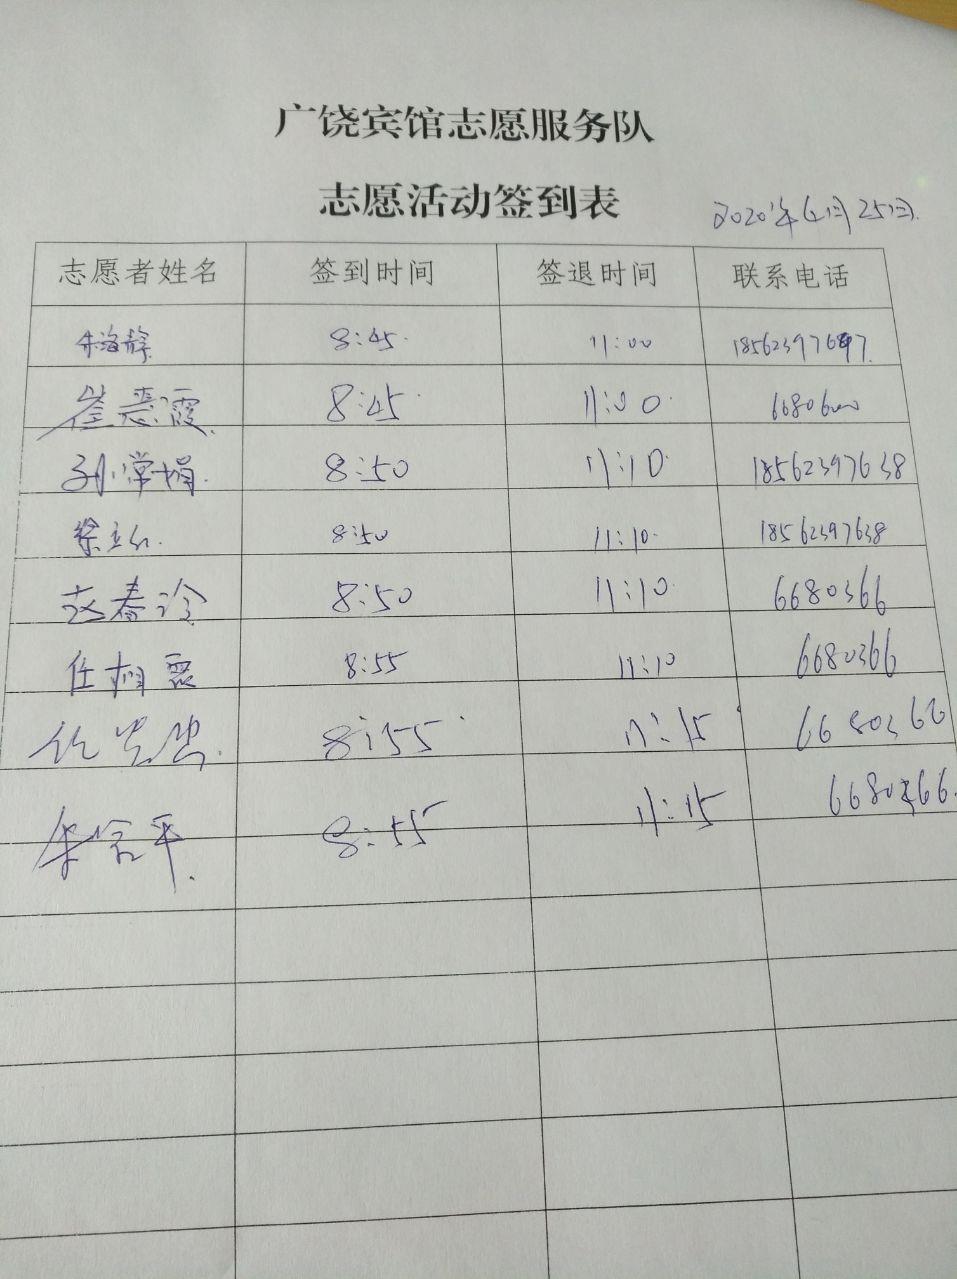 广饶宾馆志愿服务队
志愿活动签到表 2020年6月25日.
志愿者姓名 签到时间 签退时间 联系电话
朱海静 8:45 11:00
崔惠霞 8:45 11:00
孙常娟 8:50 11:10 18562397638
徐 8:50 11:10 18562397638
赵春玲 8:50 11:10 6680366
任相霞 8:55 11:10 6680366
8:55 11:15 6680366
朱 平 8:55 11:15 6680366